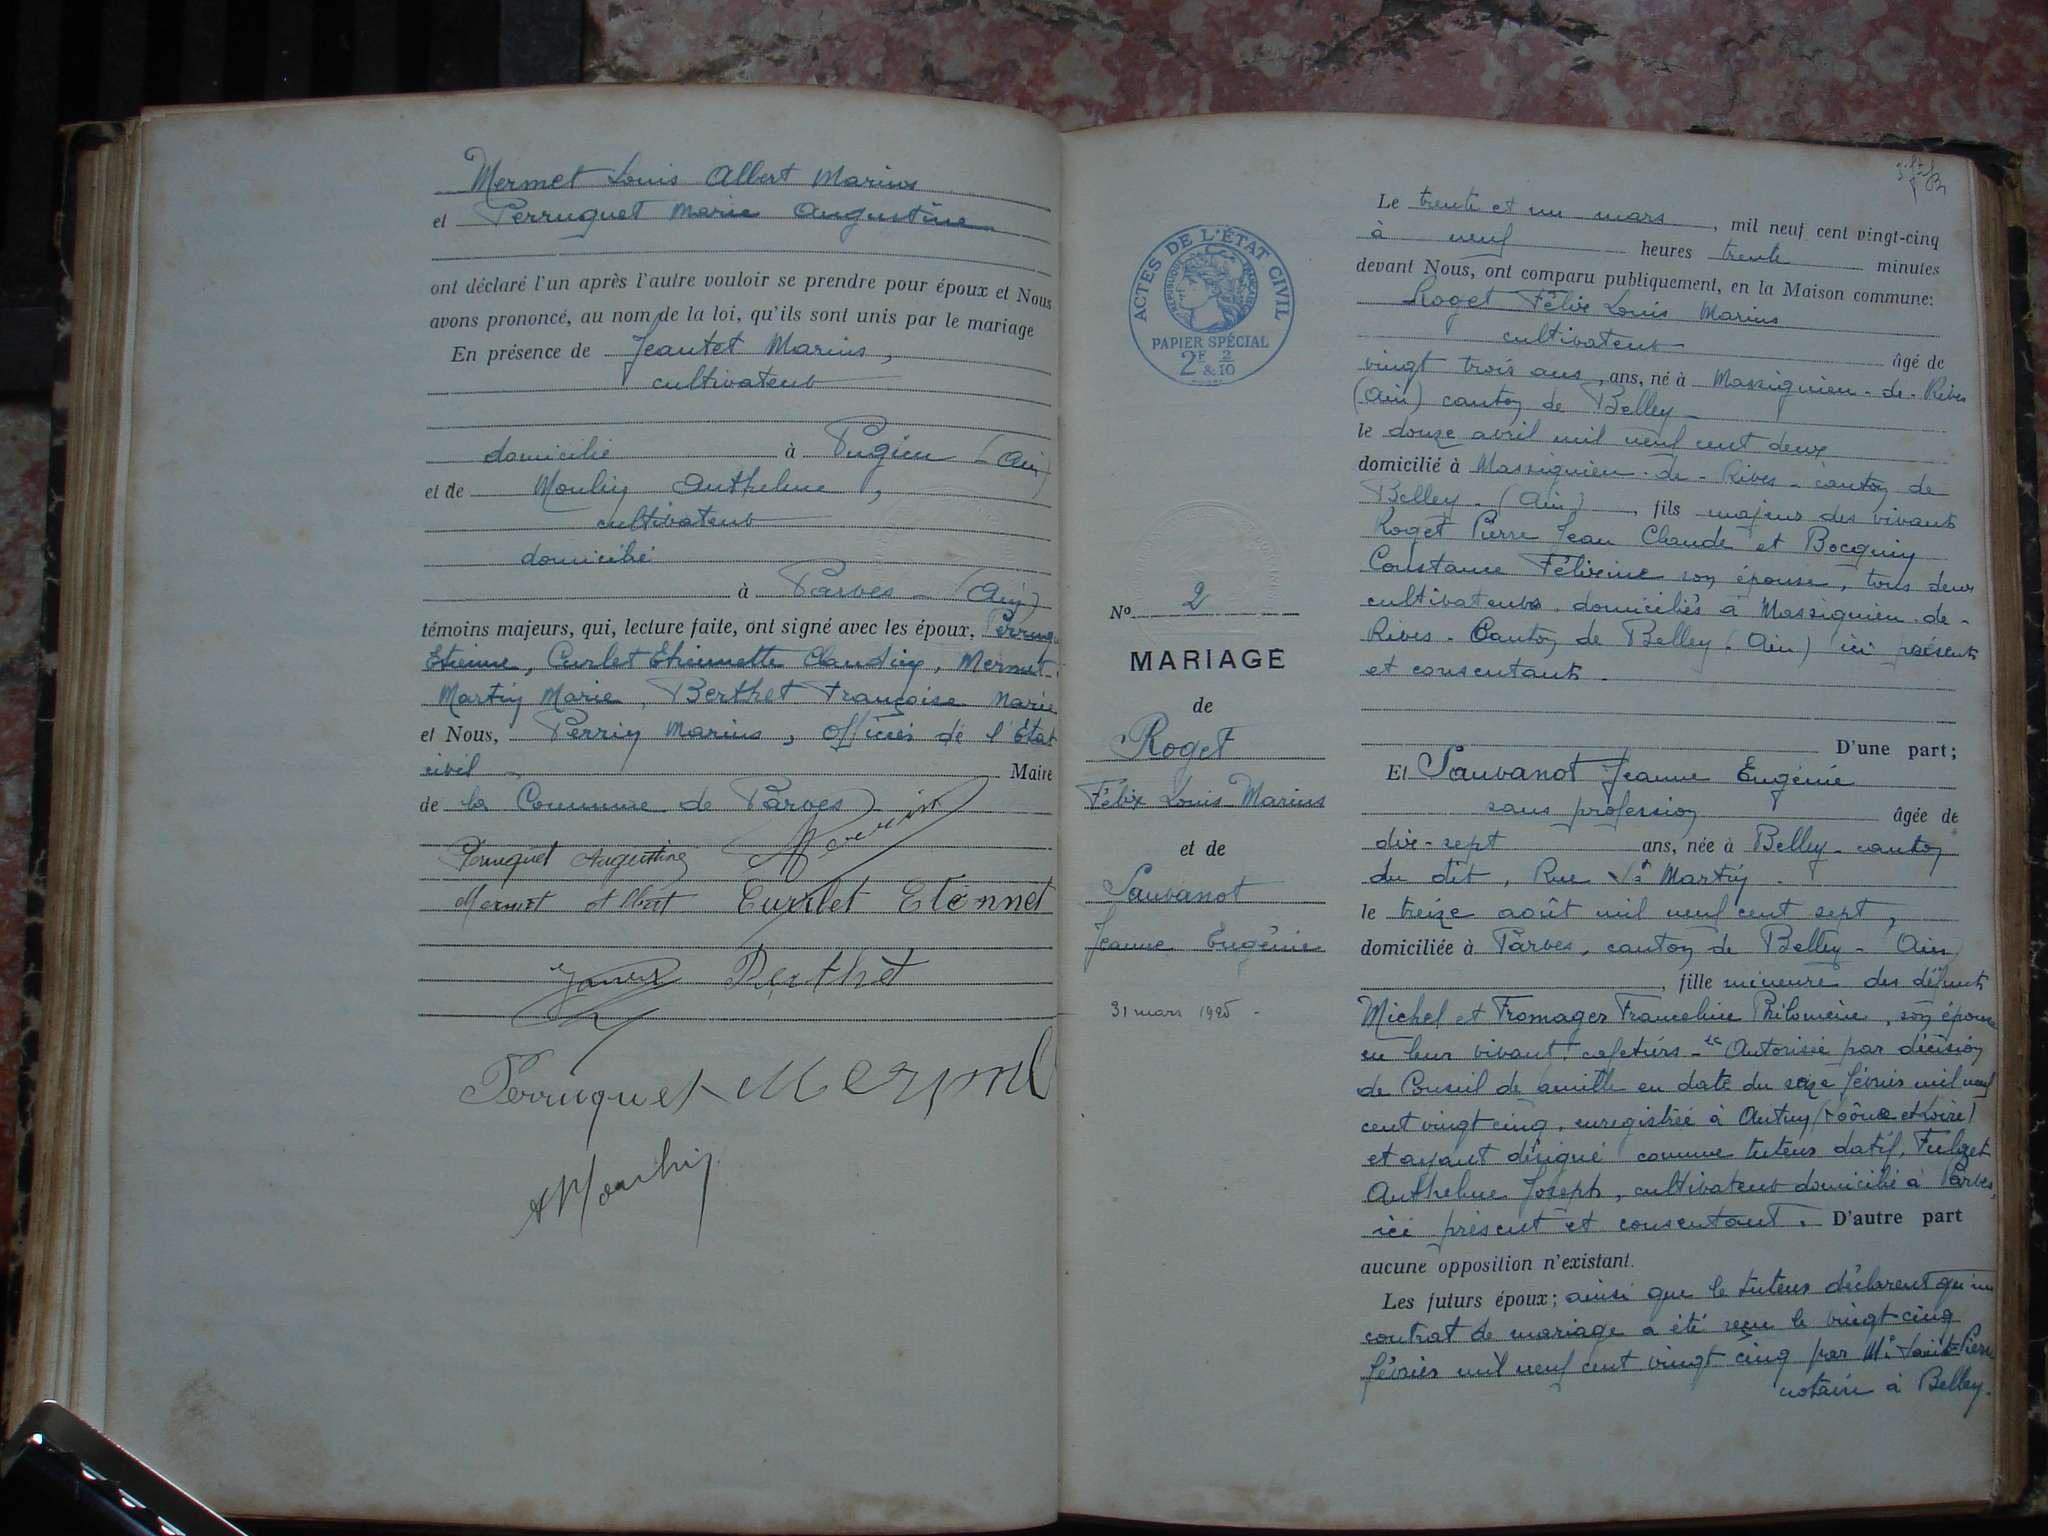 Mermet Louis Albert Marius
et Perruquet Marie Augustine
ont déclaré l'un après l'autre vouloir se prendre pour époux et Nous
avons prononcé, au nom de la loi, qu'ils sont unis par le mariage
En présence de Jeantet Marius,
cultivateur
domicilié à Pugieu (Ain)
et de Moulin Anthelme,
cultivateur
domicilié
à Parves - (Ain)
témoins majeurs, qui, lecture faite, ont signé avec les époux, Perruquet
Etienne, Curlet Etiennette Claudine, Mermet-
Martin Marie, Berthet Françoise Marie
et Nous, Perrin Marius, officier de l'Etat
civil Maire
de la Commune de Parves
Perruquet Augustine
Mermet Albert Curtlet Etennet
Berthet
Perruquet Mermet
A Moulin
ACTES DE L'ÉTAT CIVIL
RÉPUBLIQUE FRANÇAISE
PAPIER SPÉCIAL
2F & 2/10
No. 2
MARIAGE
de
Roget
Félix Louis Marius
et de
Sauvanot
Jeanne Eugénie
31 mars 1925 -
Le trente et un mars, mil neuf cent vingt-cinq
à neuf heures trente minutes
devant Nous, ont comparu publiquement, en la Maison commune:
Roget Félix Louis Marius
cultivateur âgé de
vingt trois ans, ans, né à Massignieu-de-Rives
(Ain) canton de Belley -
le douze avril mil neuf cent deux
domicilié à Massignieu-de-Rives - canton de
Belley - (Ain), fils majeur des vivants
Roget Pierre Jean Claude et Bocquin
Constance Félixine son épouse, tous deux
cultivateurs domiciliés à Massignieu-de-
Rives - Canton de Belley (Ain) ici présents
et consentants.
D'une part;
Et Sauvanot Jeanne Eugénie
sans profession âgée de
dix-sept ans, née à Belley - canton
du dit, Rue St Martin.
le treize août mil neuf cent sept,
domiciliée à Parves, canton de Belley - Ain
, fille mineure des défunts
Michel et Fromager Franceline Philomène, son épouse
en leur vivant cafetiers - Autorisée par décision
de Conseil de famille en date du seize février mil neuf
cent vingt cinq, enregistrée à Autun (Saône et Loire)
et ayant désigné comme tuteur datif,
Anthelme Joseph, cultivateur domicilié à Parves,
ici présent et consentant. D'autre part
aucune opposition n'existant.
Les futurs époux; ainsi que le tuteur déclarent qu'un
contrat de mariage a été reçu le vingt cinq
février mil neuf cent vingt cinq par Me Saint-Pierre
notaire à Belley.